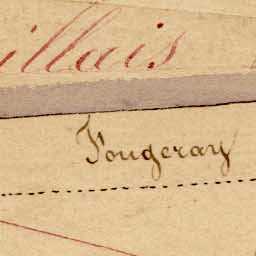 illais
Fougeray